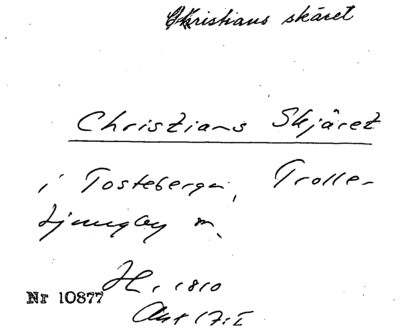 Christians skäret
Christians Skjäret
i Tosteberga, Trolle-
Ljungby sn.
H, 1810
Nr 10877
Akt 17:I